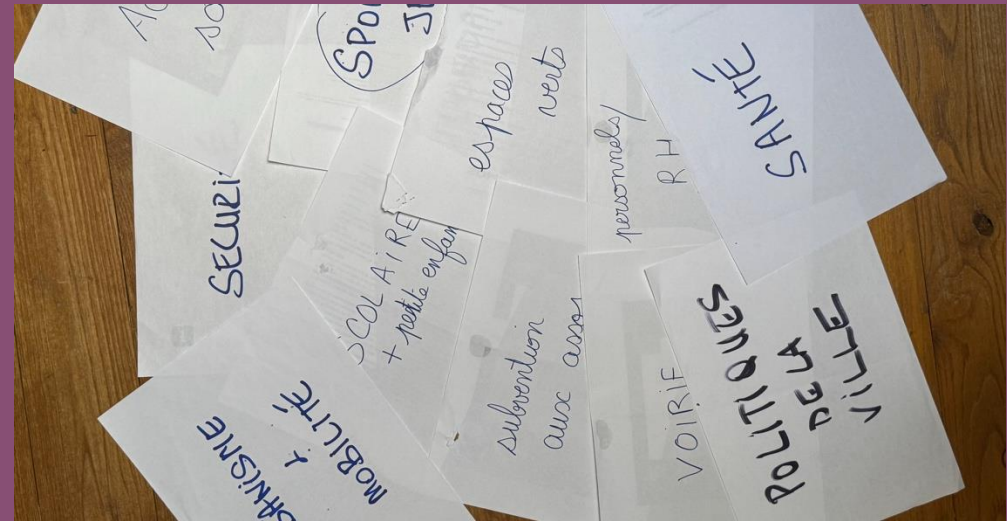 SPO
espaces
verts
personnels/
RH
SANTÉ
SECURI
SCOLAIRE
+ petite enfan
subvention
aux assos
VOIRIE
POLITIQUES
DE LA
VILLE
BANISME
&
MOBILITÉ